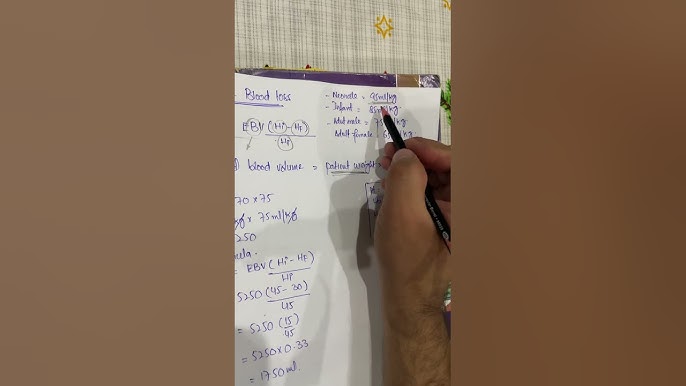 Blood loss
- Neonate = 95ml/kg
- Infant = 85ml/kg
- Adult male =
Adult female
EBV (Hi - HF)
Hi
blood volume = patient weight
70 x 75
kg x 75 ml/kg
5250
= EBV (Hi - HF)
Hi
5250 (45 - 30)
45
= 5250 (15)
45
= 5250 x 0.33
= 1750 ml.